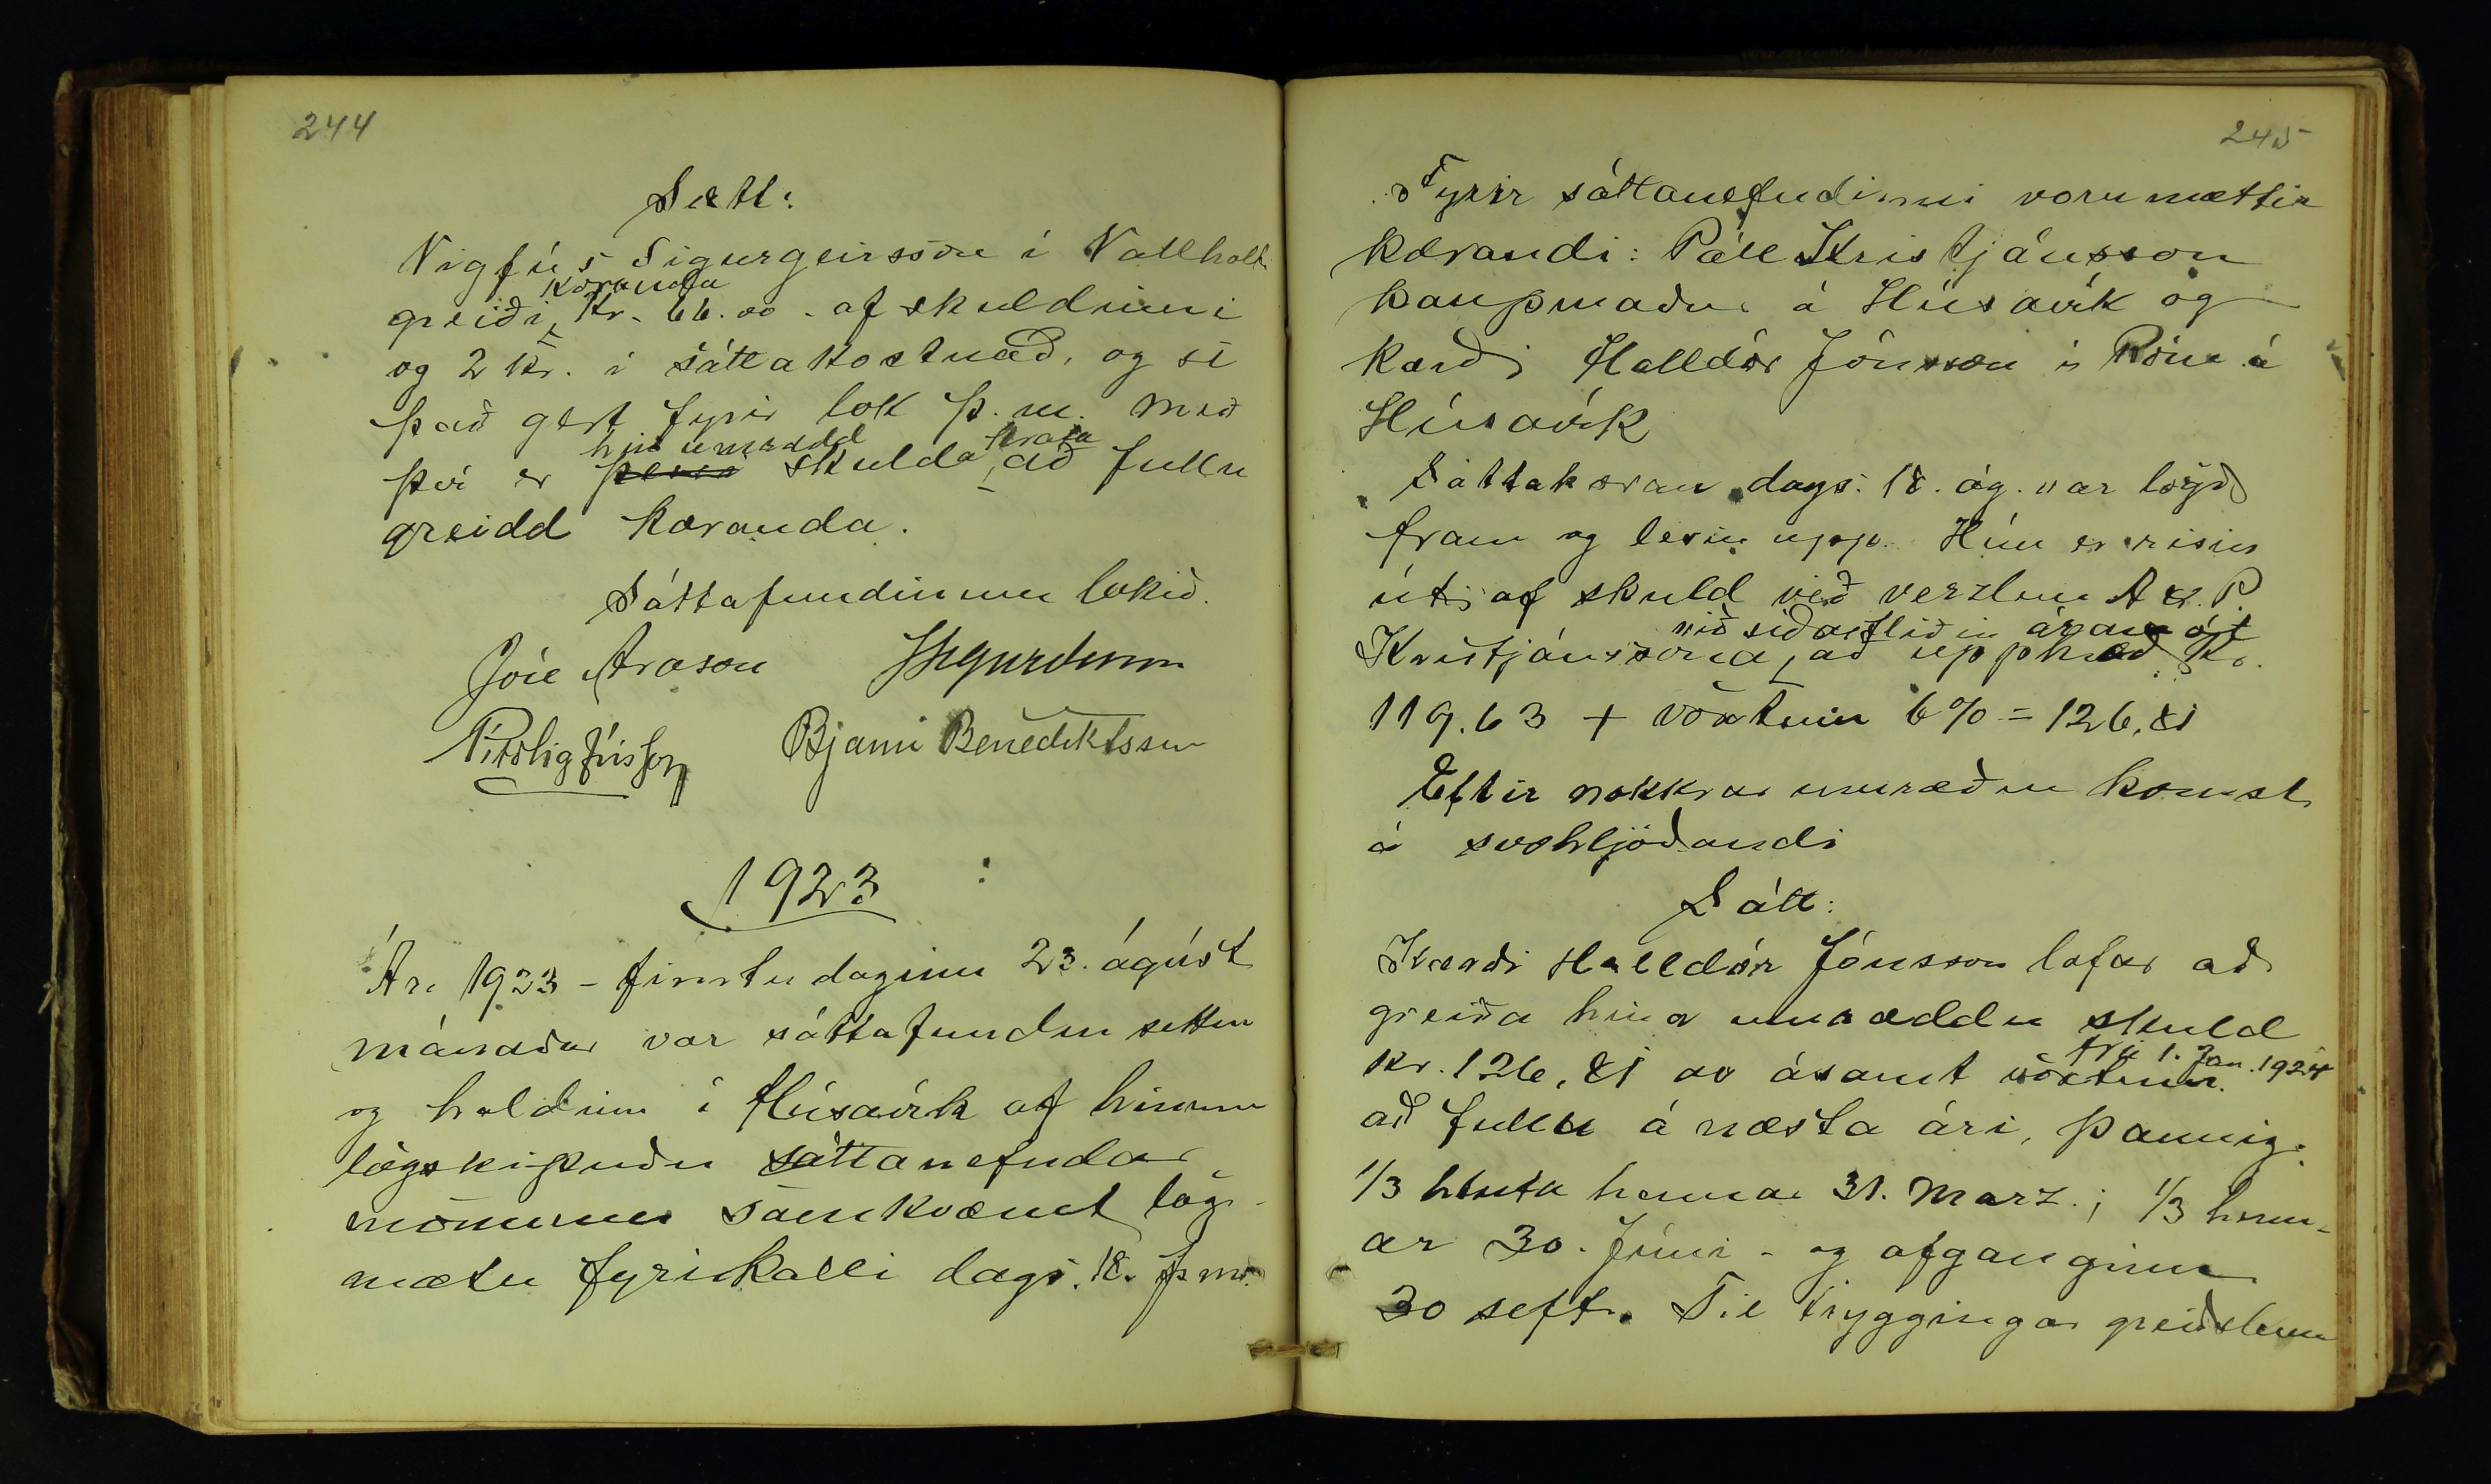 244
Sætt:
Vigfús Sigurgeirsson í Vallholti
kæranda
greiði, Kr. 66.00 - af skuldinni
og 2 kr. í sáttakostnað, og sé
það gert fyrir lok þ.m. með
hin umrædd krafa
því er þessi skulda, að fullu
greidd kæranda.
Sáttafundinum lokið.
Jóe Arason
Bjarni Benediktsson
1923
Ár 1923 - fimtudaginn 23. ágúst
mánaðar var sáttafundur settur
og haldinn í Húsavík af hinum
lögskipuðu sáttanefndar
mönnum samkvæmt lög-
mætu fyrirkalli dags. 18. þ.m.
245
Fyrir sáttanefndinni voru mættir
kærandi: Páll Kristjánsson
kaupmaður á Húsavík og
kærði Halldór Jónsson í Róm á
Húsavík
Sáttakæran dags. 18. ág. var lögð
fram og lesin upp. Hún er risin
út af skuld við verzlun A & P.
við síðastliðin áramót
Kristjánssona, að upphæð Kr.
119.63 + vöxtum 6% = 126,81
Eftir nokkrar umræður komst
á svohljóðandi
Sátt:
Kærði Halldór Jónsson lofar að
greiða hina umræddu skuld
frá 1. Jan. 1924
kr. 126,81 ásamt vöxtum
að fullu á næsta ári, þannig:
1/3 hluta hennar 31. Marz.; 1/3 henn-
ar 30. Júní - og afganginn
30 sept. Til tryggingar greiðslunni